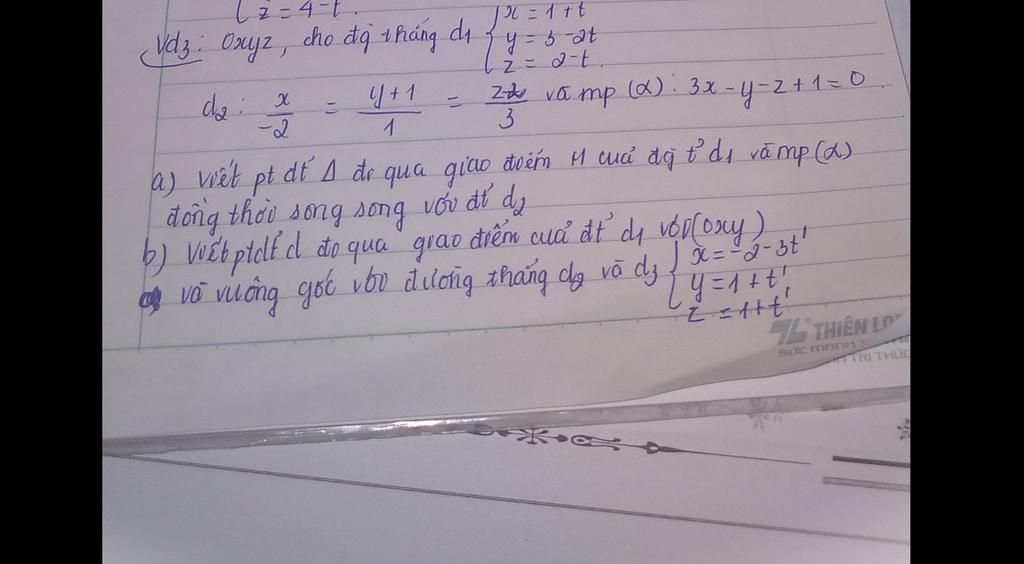 z = 4 - t.
Vd3: Oxyz, cho đg thẳng d1 { x = 1 + t
y = 3 - 2t
z = 2 - t.
d2: x/-2 = y+1/1 = /3 và mp (α): 3x - y - z + 1 = 0
a) viết pt đt Δ đi qua giao điểm H cuả đg t² d1 và mp(α)
đồng thời song song với đt d2
b) Viết ptđt d đi qua giao điểm cuả đt d1 với (Oxy)
và vuông góc với đường thẳng d2 và d3 { x = -2 - 3t'
y = 1 + t'
z = 1 + t'
THIÊN LO
SỨC MẠNH
TRI THỨC